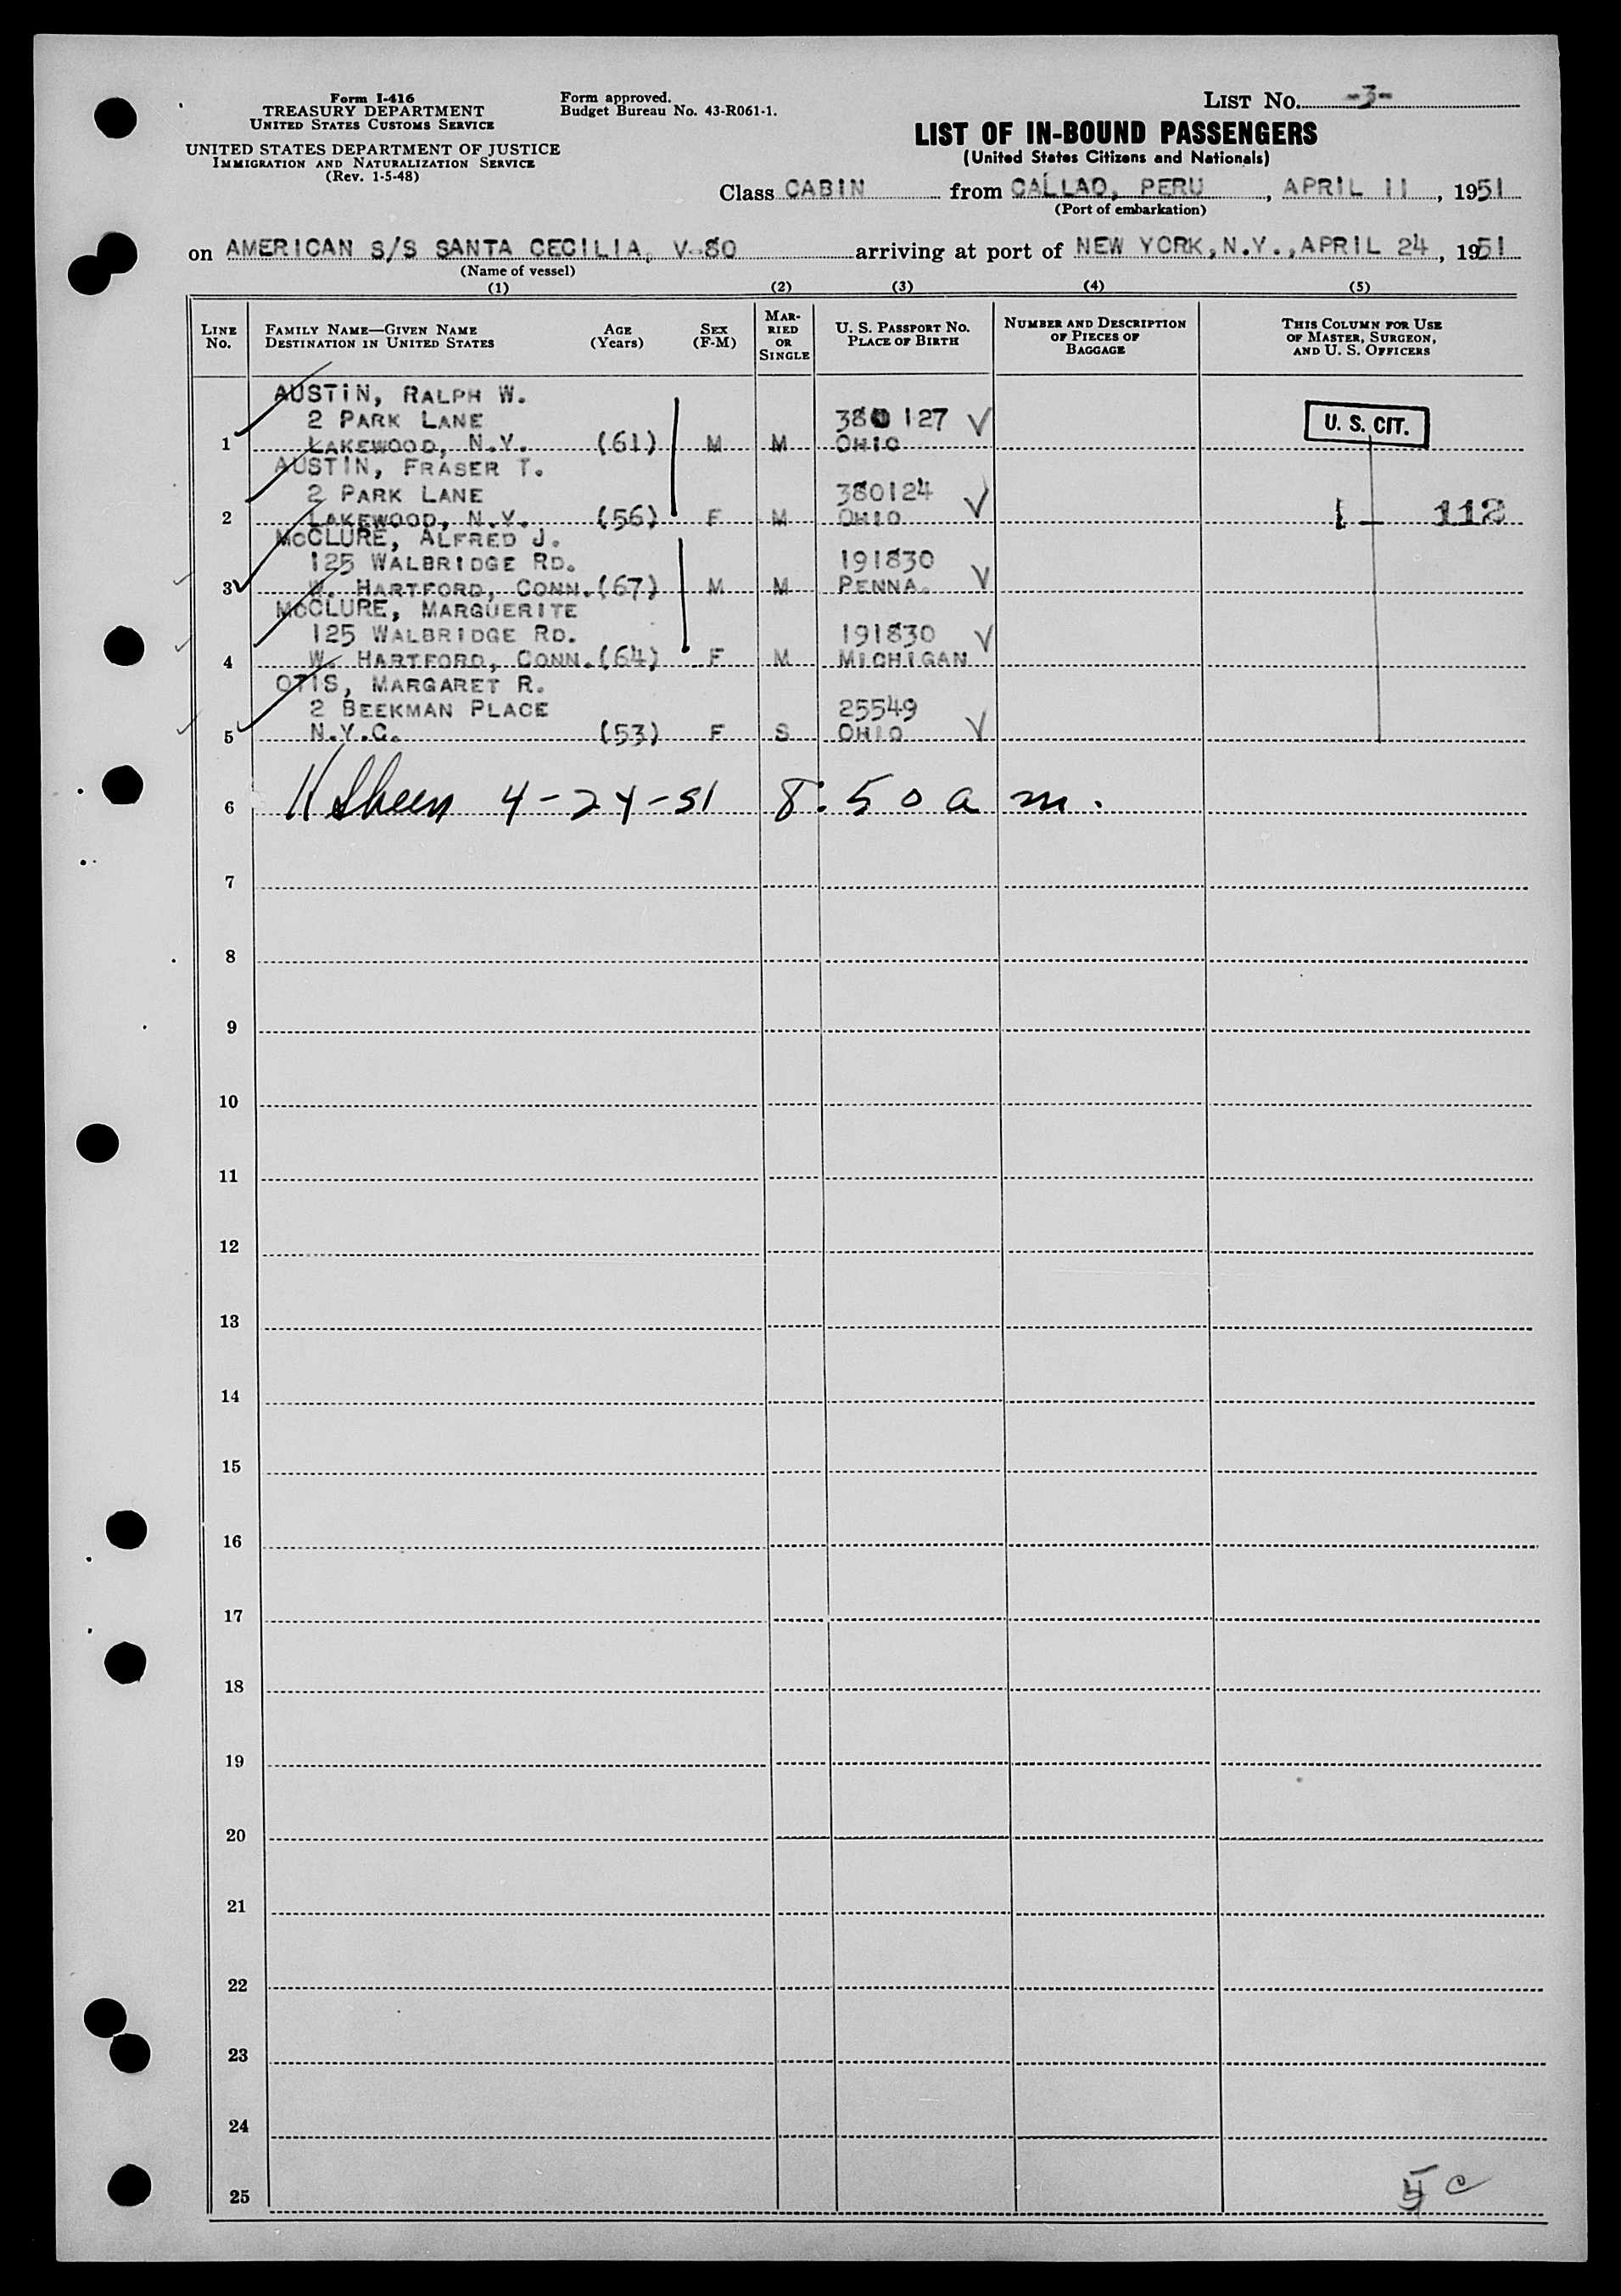 Form I-416
TREASURY DEPARTMENT
UNITED STATES CUSTOMS SERVICE
UNITED STATES DEPARTMENT OF JUSTICE
IMMIGRATION AND NATURALIZATION SERVICE
(Rev. 1-5-48)
Form approved.
Budget Bureau No. 43-R061-1.
LIST No. -3-
LIST OF IN-BOUND PASSENGERS
(United States Citizens and Nationals)
Class CABIN from CALLAO, PERU, APRIL 11, 1951
(Port of embarkation)
on AMERICAN S/S SANTA CECILIA, V-80 arriving at port of NEW YORK, N.Y., APRIL 24, 1951
(Name of vessel)
(1) (2) (3) (4) (5)
LINE No.
FAMILY NAME—GIVEN NAME
DESTINATION IN UNITED STATES
AGE (Years)
SEX (F-M)
MARRIED OR SINGLE
U. S. PASSPORT NO.
PLACE OF BIRTH
NUMBER AND DESCRIPTION
OF PIECES OF
BAGGAGE
THIS COLUMN FOR USE
OF MASTER, SURGEON,
AND U. S. OFFICERS
AUSTIN, RALPH W.
2 PARK LANE 380127 U. S. CIT.
1 LAKEWOOD, N.Y. (61) M M OHIO
AUSTIN, FRASER T.
2 PARK LANE 380124
2 LAKEWOOD, N.Y. (56) F M OHIO 1 112
MCCLURE, ALFRED J.
125 WALBRIDGE RD. 191830
3 W. HARTFORD, CONN. (67) M M PENNA.
MCCLURE, MARGUERITE
125 WALBRIDGE RD. 191830
4 W. HARTFORD, CONN. (64) F M MICHIGAN
OTIS, MARGARET R.
2 BEEKMAN PLACE 25549
5 N.Y.C. (53) F S OHIO
6 4-24-51 8:50 a m.
7
8
9
10
11
12
13
14
15
16
17
18
19
20
21
22
23
24
25 5 c